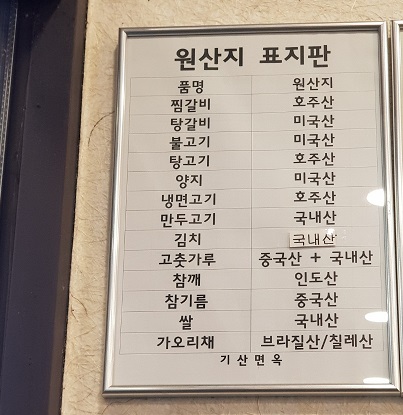 원산지 표지판
품명 원산지
찜갈비 호주산
탕갈비 미국산
불고기 미국산
탕고기 호주산
양지 미국산
냉면고기 호주산
만두고기 국내산
김치 국내산
고춧가루 중국산 + 국내산
참깨 인도산
참기름 중국산
쌀 국내산
가오리채 브라질산/칠레산
기산면옥